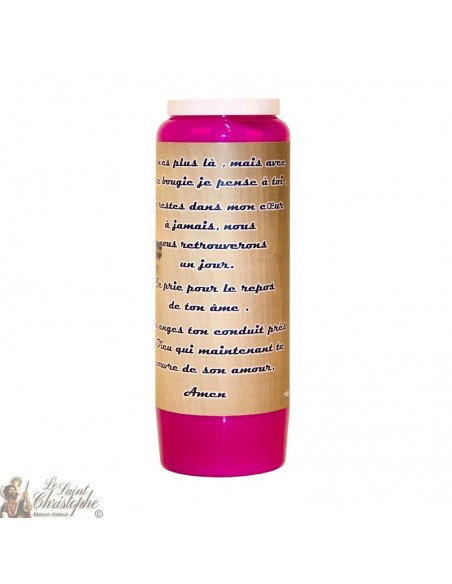 es plus là , mais avec
bougie je pense à toi
restes dans mon cœur
à jamais, nous
nous retrouverons
un jour.
prie pour le repos
de ton âme .
anges ton conduit près
Dieu qui maintenant te
couvre de son amour.
Amen
Le Saint
Christophe
Maison Hatteur
©